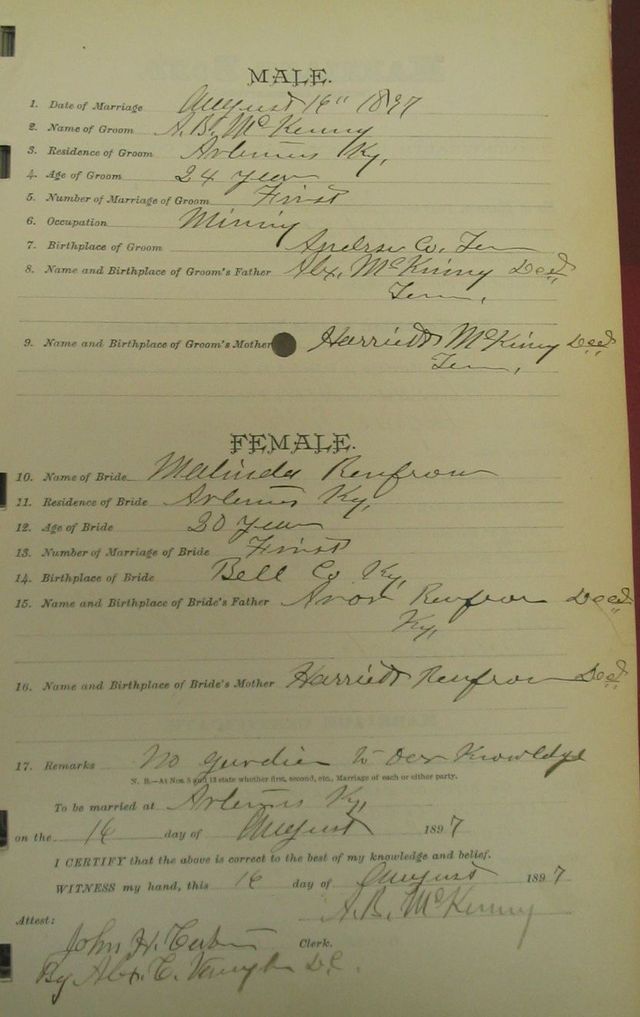 MALE.
1. Date of Marriage August 16" 1897
2. Name of Groom A. B. McKinny
3. Residence of Groom Artemus Ky,
4. Age of Groom 24 year
5. Number of Marriage of Groom First
6. Occupation Mining
7. Birthplace of Groom Co. Ten
8. Name and Birthplace of Groom's Father Alx. McKinny Decd
Tenn,
9. Name and Birthplace of Groom's Mother Harriett McKinny Decd
Tenn,
FEMALE.
10. Name of Bride Malinda Renfrow
11. Residence of Bride Artemus Ky,
12. Age of Bride 20 year
13. Number of Marriage of Bride First
14. Birthplace of Bride Bell Co Ky,
15. Name and Birthplace of Bride's Father Renfrow Decd
Ky,
16. Name and Birthplace of Bride's Mother Harriett Renfrow Decd
17. Remarks No gurdien to our Knowldge
N. B.—At Nos. 5 and 13 state whether first, second, etc., Marriage of each or either party.
To be married at Artemus Ky,
on the 16 day of August 1897
I CERTIFY that the above is correct to the best of my knowledge and belief.
WITNESS my hand, this 16 day of August 1897
A. B. McKinny
Attest:
John H. Clerk.
By Alx. C. Vaughn D.C.